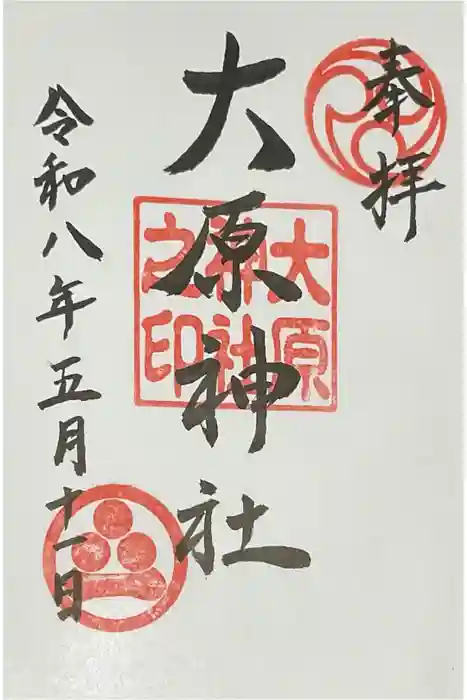 奉拝
大原神社
大原神社之印
令和八年五月十一日